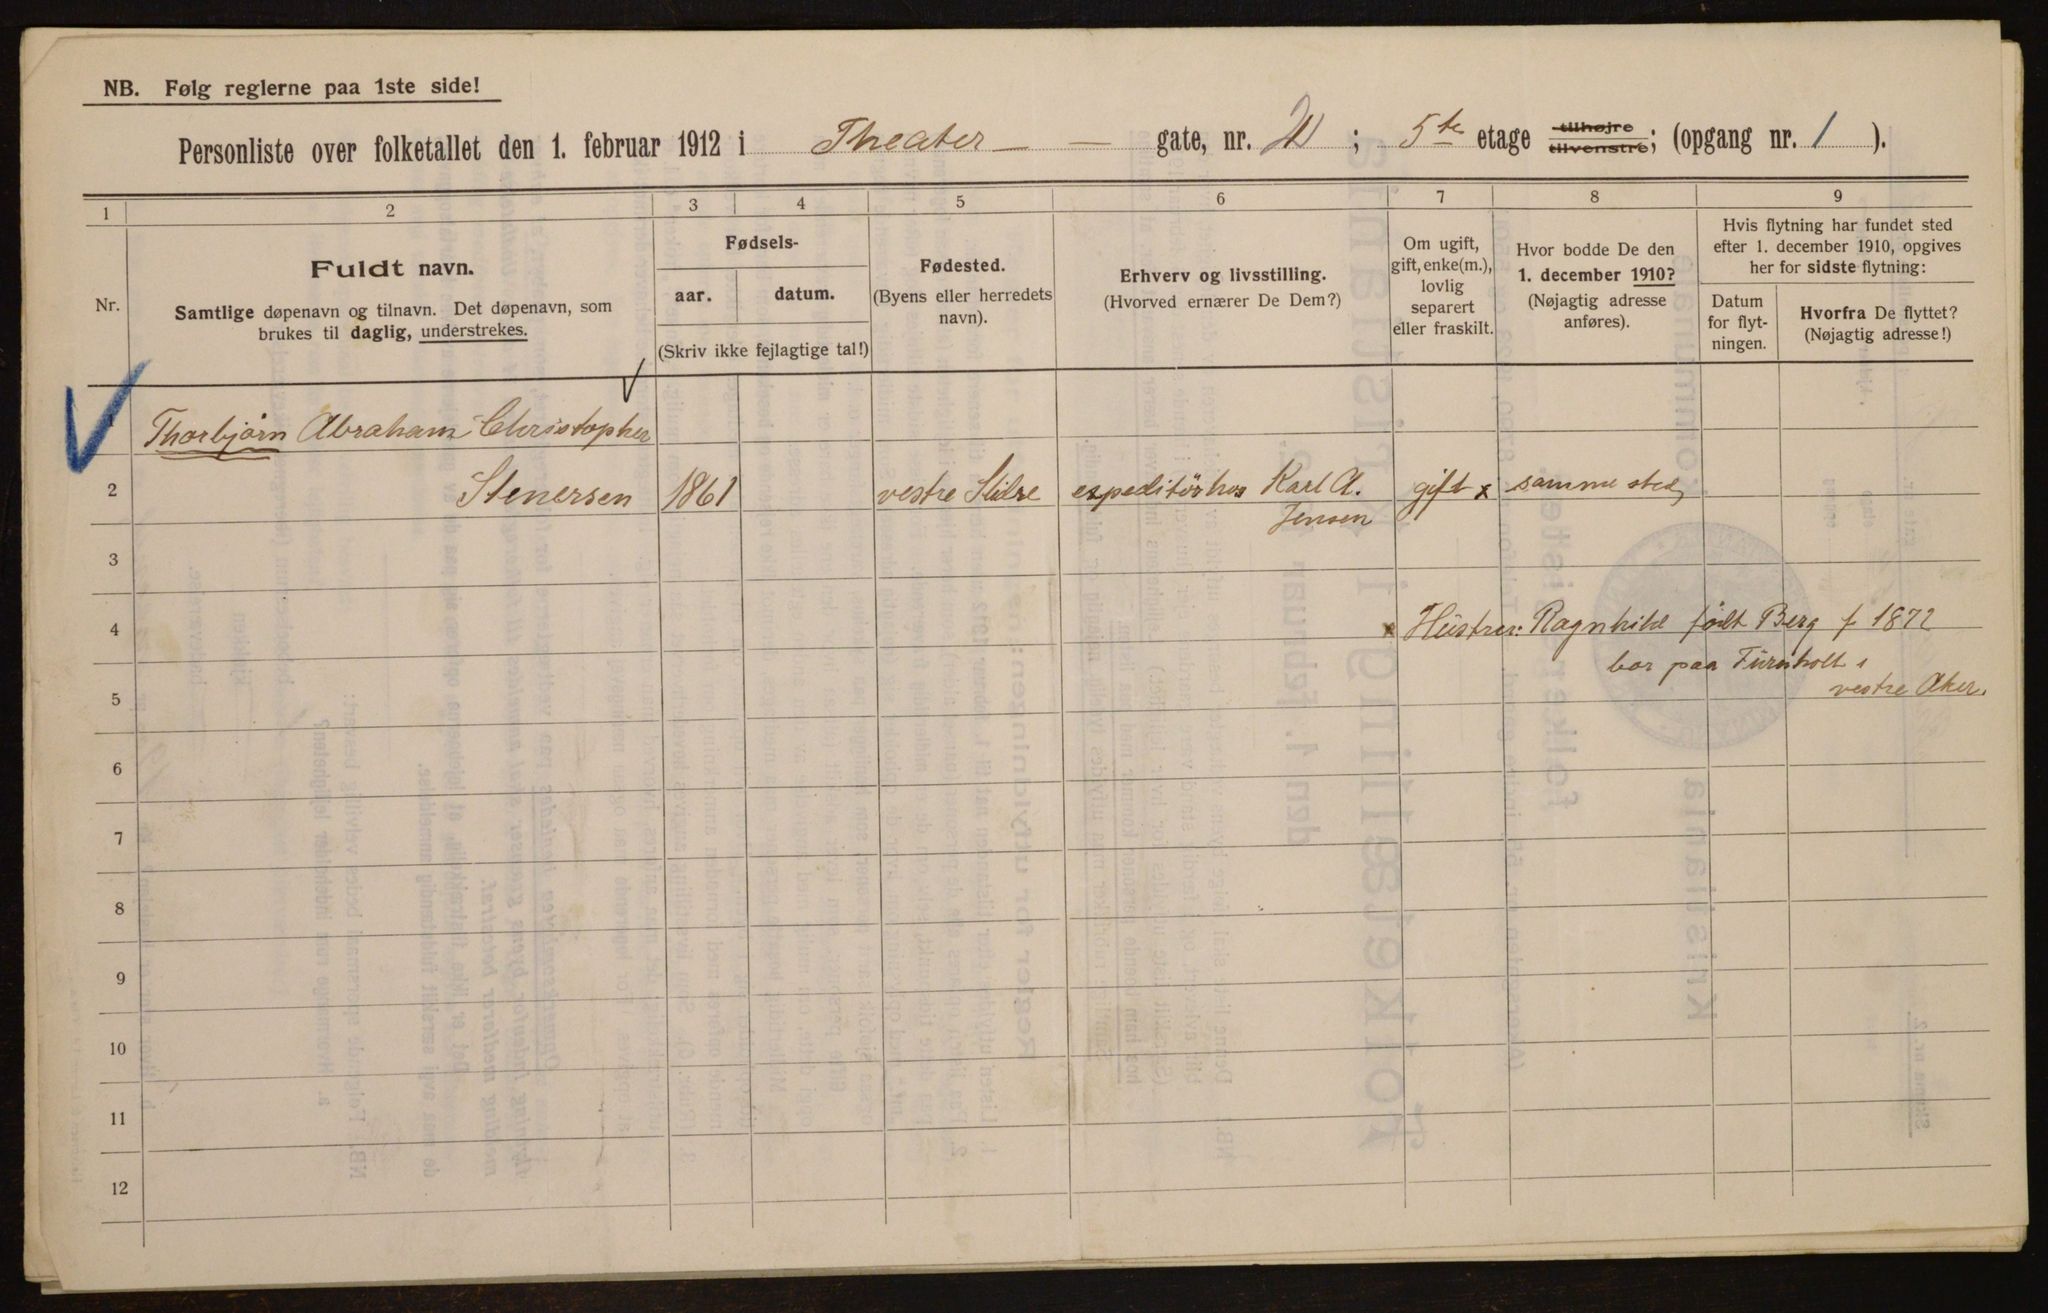 NB. Følg reglerne paa 1ste side!
Personliste over folketallet den 1. februar 1912 i Theater — — gate, nr. ; 5te etage tilhøjre tilvenstre; (opgang nr. 1 ).
1 2 3 4 5 6 7 8 9
Nr.
Fuldt navn.
Samtlige døpenavn og tilnavn. Det døpenavn, som
brukes til daglig, understrekes.
Fødsels-
aar. datum.
(Skriv ikke fejlagtige tal!)
Fødested.
(Byens eller herredets
navn).
Erhverv og livsstilling.
(Hvorved ernærer De Dem?)
Om ugift,
gift, enke(m.),
lovlig
separert
eller fraskilt.
Hvor bodde De den
1. december 1910?
(Nøjagtig adresse
anføres).
Hvis flytning har fundet sted
efter 1. december 1910, opgives
her for sidste flytning:
Datum
for flyt-
ningen.
Hvorfra De flyttet?
(Nøjagtig adresse!)
1 Thorbjørn Abraham Christopher
2 Stenersen 1861 vestre Slidre expeditør hos Karl A. gift x samme sted
Jensen
3
4 x Hustru: Ragnhild født Berg f 1872
bor paa Furuholt i
5 vestre Aker.
6
7
8
9
10
11
12